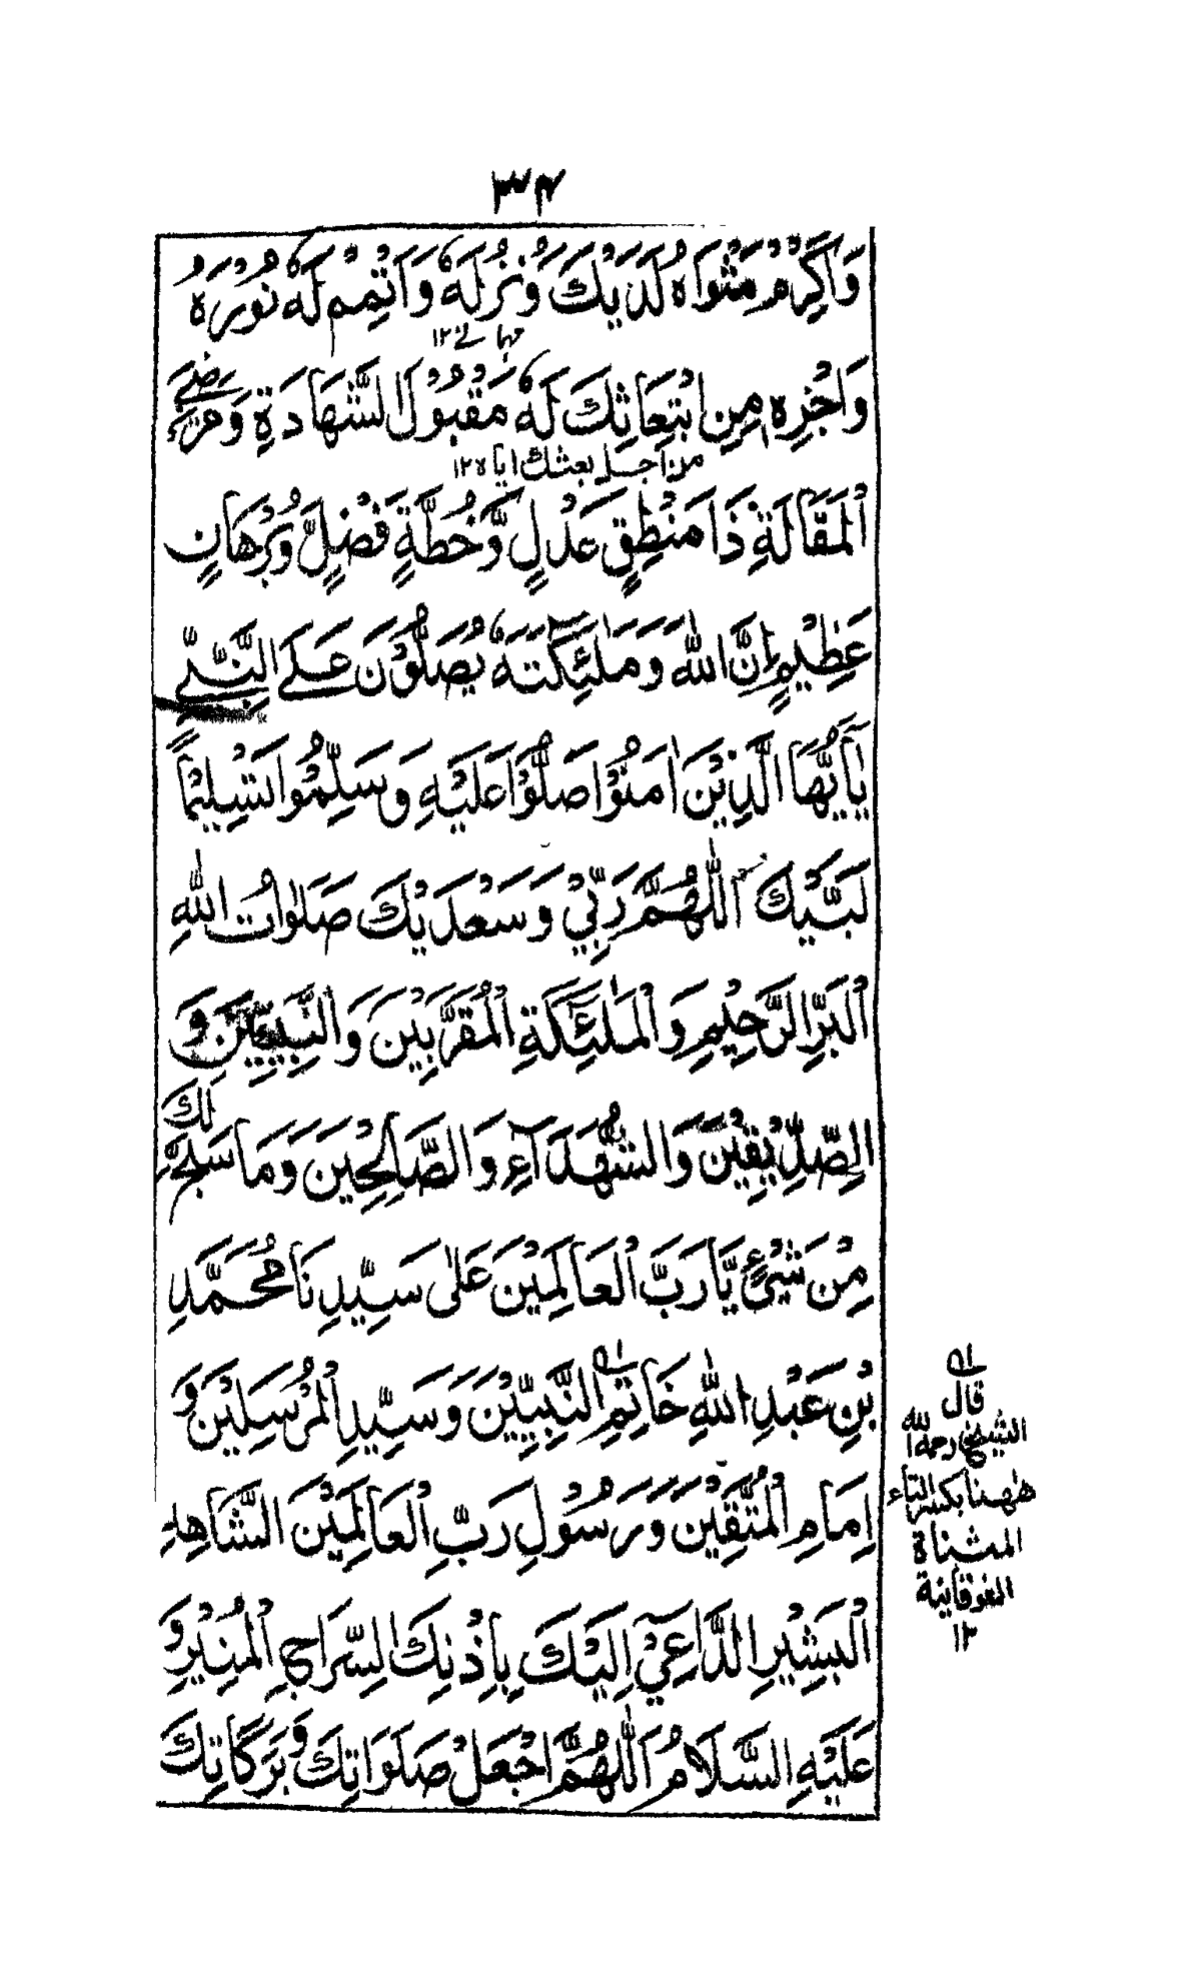 ٣٤
وَاَكْرِمْ مَثْوَاهُ لَدَيْكَ وَنُزُلَهٗ وَاَتْمِمْ لَهٗ نُوْرَهٗ
١٢
وَاجْزِهٖ مِنِ ابْتِعَاثِكَ لَهٗ مَقْبُوْلَ الشَّهَادَةِ وَمَرْضِيَّ
من اجل بعثك اياه ١٢
الْمَقَالَةِ ذَا مَنْطِقٍ عَدْلٍ وَّخُطَّةٍ فَضْلٍ وَّبُرْهَانٍ
عَظِيْمٍ اِنَّ اللّٰهَ وَمَلٰٓئِكَتَهٗ يُصَلُّوْنَ عَلَى النَّبِيِّ
يٰٓاَيُّهَا الَّذِيْنَ اٰمَنُوْا صَلُّوْا عَلَيْهِ وَسَلِّمُوْا تَسْلِيْمًا
لَبَّيْكَ اَللّٰهُمَّ رَبِّيْ وَسَعْدَيْكَ صَلَوٰاتُ اللّٰهِ
الْبَرِّ الرَّحِيْمِ وَالْمَلٰٓئِكَةِ الْمُقَرَّبِيْنَ وَالنَّبِيِّيْنَ وَ
الصِّدِّيْقِيْنَ وَالشُّهَدَآءِ وَالصَّالِحِيْنَ وَمَا سَبَّحَ لَكَ
مِنْ شَيْءٍ يَّا رَبَّ الْعَالَمِيْنَ عَلٰى سَيِّدِنَا مُحَمَّدِ
بْنِ عَبْدِ اللّٰهِ خَاتِمِ النَّبِيِّيْنَ وَسَيِّدِ الْمُرْسَلِيْنَ وَ
اِمَامِ الْمُتَّقِيْنَ وَرَسُوْلِ رَبِّ الْعَالَمِيْنَ الشَّاهِدِ
الْبَشِيْرِ الدَّاعِيْ اِلَيْكَ بِاِذْنِكَ السِّرَاجِ الْمُنِيْرِ وَ
عَلَيْهِ السَّلَامُ اَللّٰهُمَّ اجْعَلْ صَلَوَاتِكَ وَبَرَكَاتِكَ
قال
الشيخ رحمه الله
هٰهنا بكسر التاء
المثناة
الفوقانية
١٢